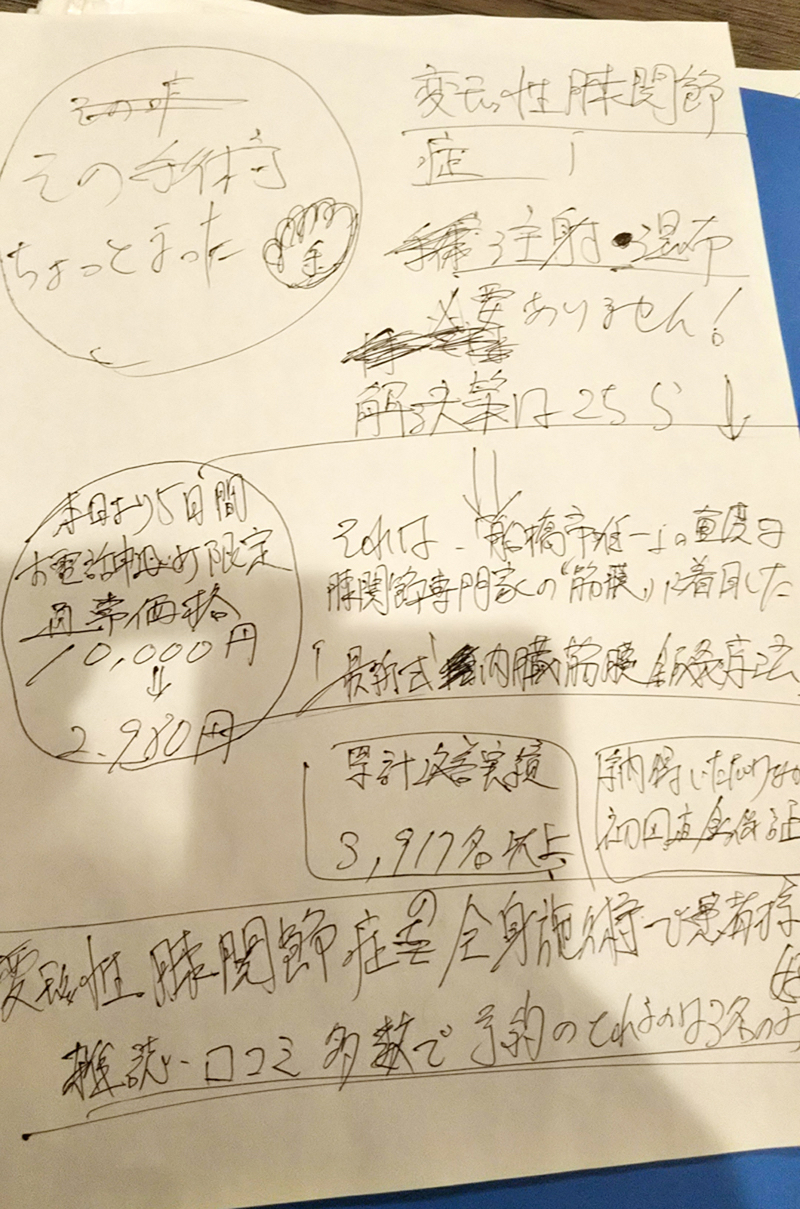 その手術
ちょっとまった
変形性膝関節
症
注射・湿布
必要ありません!
解決策はこちら ↓
本日より5日間
お電話申込み限定
通常価格
10,000円
↓
2.980円
それは、「船橋市唯一」の重度な
膝関節専門家の"筋膜"に着目した
最新式 内臓筋膜
累計改善実績
3,917名以上
納得いただけなか
初回
変形性膝関節症の全身施術で患者様
雑誌・口コミ多数で予約のとれ